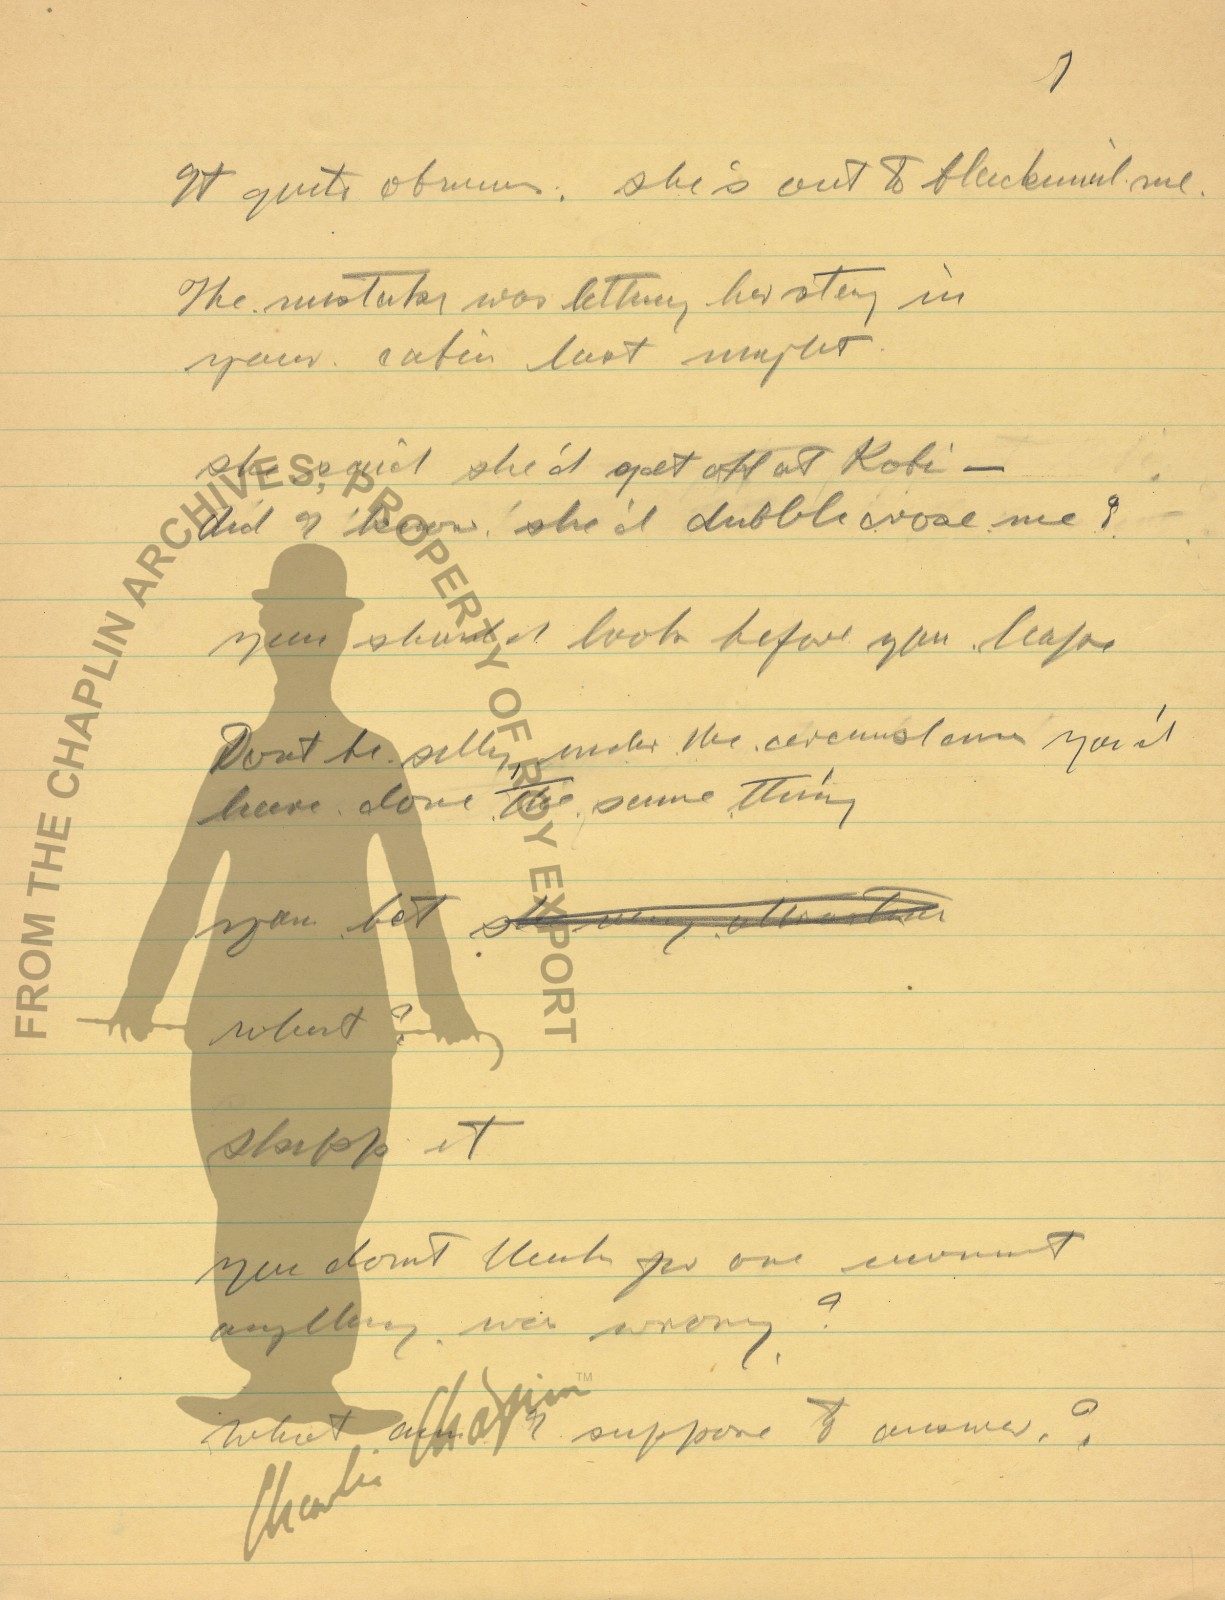 1
It quite obvious. she's out to blackmail me.
The mistake was letting her stay in
your cabin last might
she said she'd get off at Kobi —
did I know she'd dubble crose me?
you should look before you leape
Dont be silly, under the circumstance you'd
have done the same thing
you bet she very attractive
what?
skipp it
you don't think for one moment
anything was wrong?
what am I suppose to answer.?
FROM THE CHAPLIN ARCHIVES, PROPERTY OF ROY EXPORT
Charlie Chaplin™